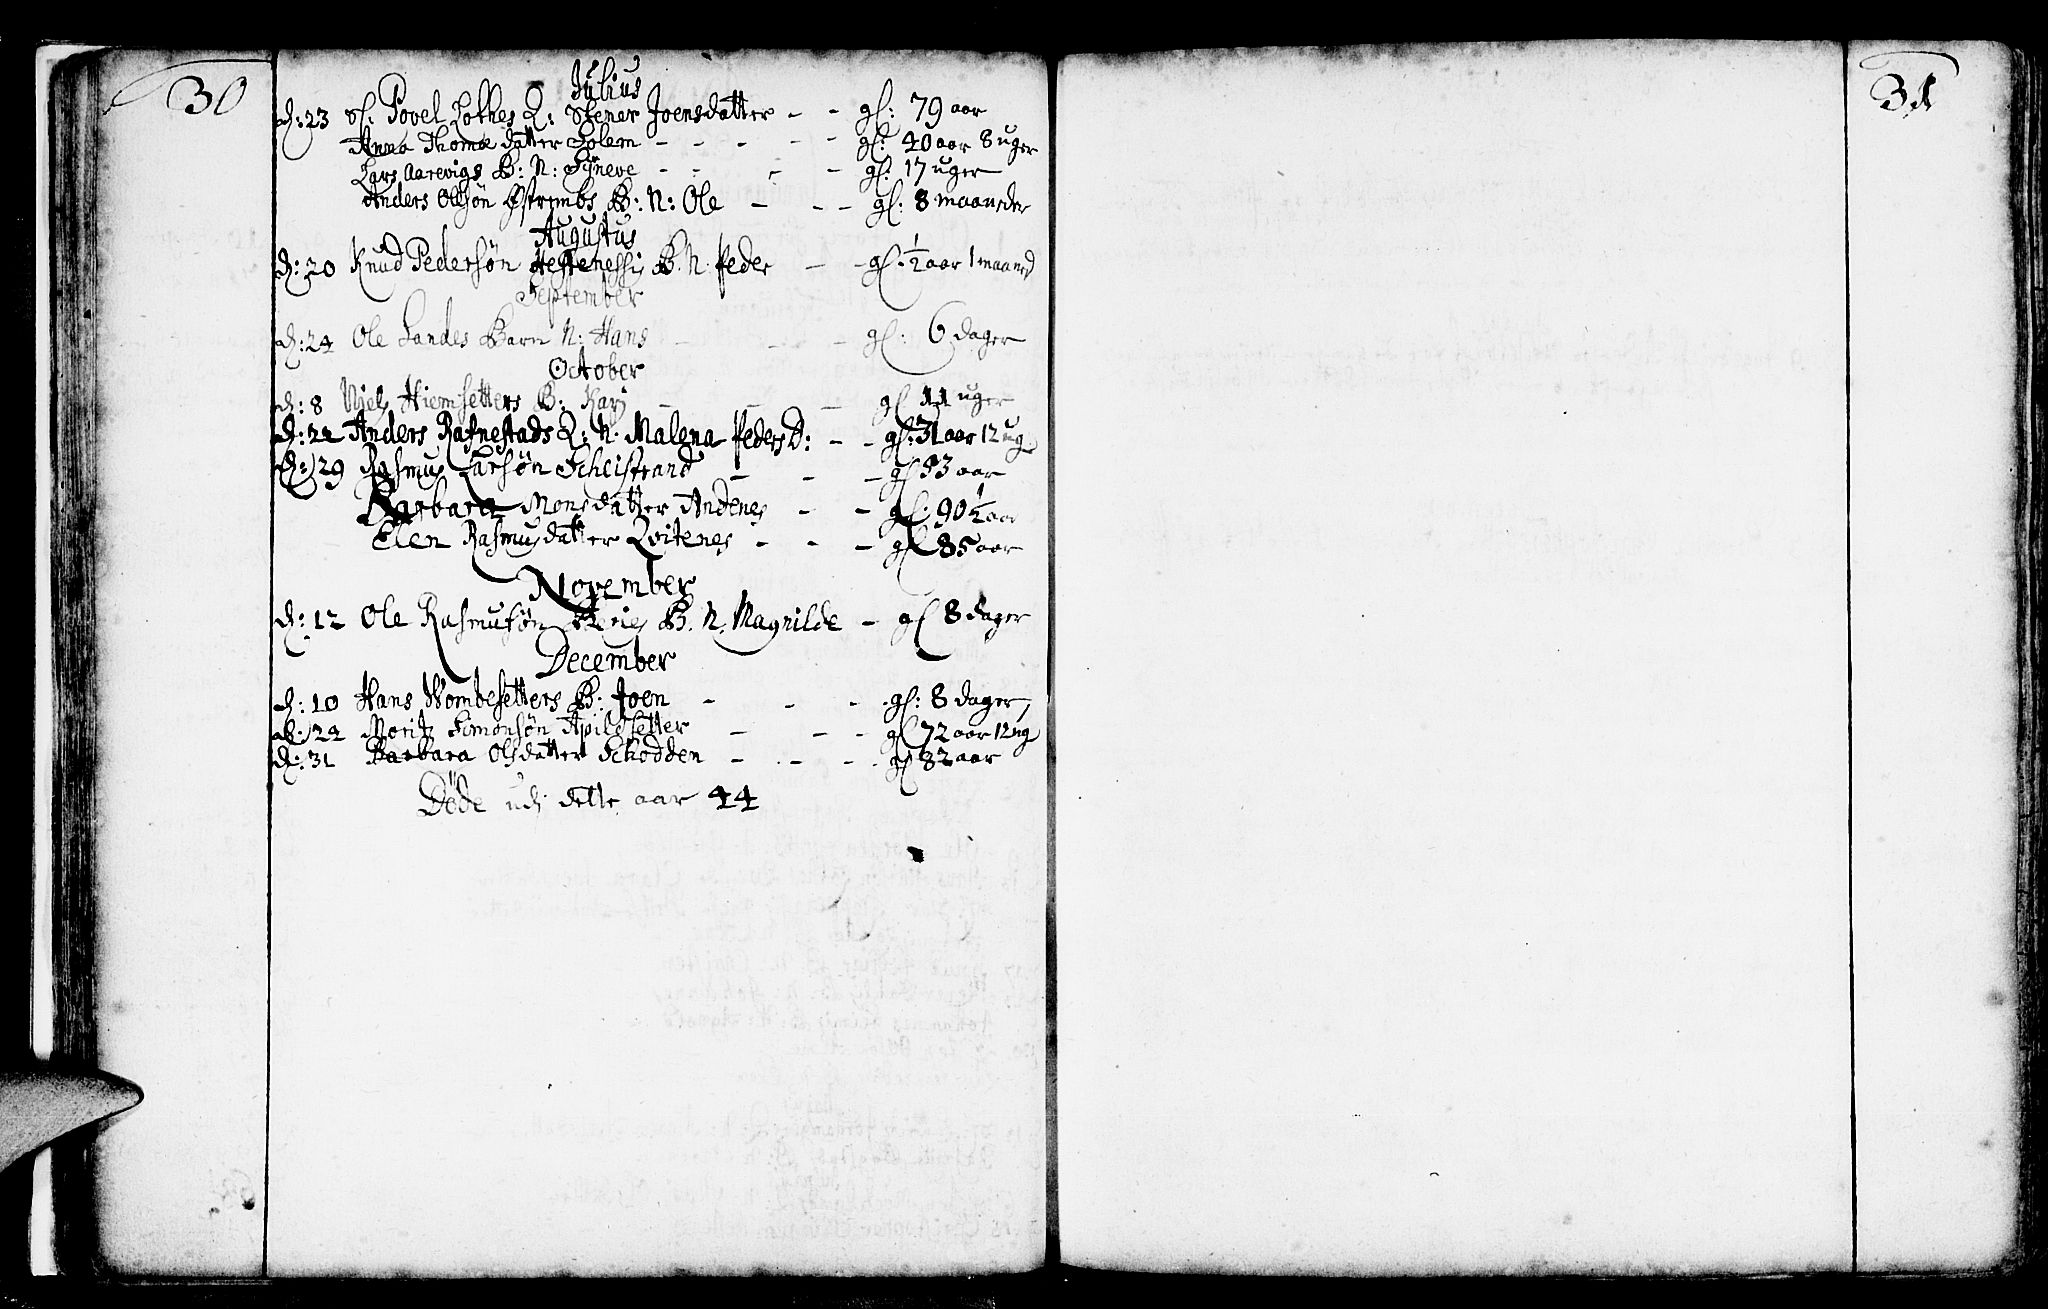 30
Julius
d: 23 Sl: Povel Lothes Q: Stener Joensdatter - - gl: 79 aar
Anna Thomæ datter Solem - - - - - gl: 40 aar 8 uger
Lars Aarevigs B: N: Syneve - - - - gl: 17 uger
Anders Olesøn Østrembs B: N: Ole - - - gl: 8 maaneder
Augustus
d: 20 Knud Pedersøn B. N. Peder - - gl: 1/2 aar 1 maaned
September
d: 24 Ole Sandes Barn N: Hans - - - gl: 6 dager
October
d: 8 Niels Hiemsetters B: Kari - - - gl 11 uger
d: 22 Anders Rafnestads Q: N. Malena Peders D: - - gl: 31 aar 12 ug
d: 29 Rasmus Larsøn Scheistrand - - - gl 53 aar
Barbara Monsdatter Andenes - - gl: 90 1/2 aar
Elen Rasmusdatter Qvitenes - - - gl 85 aar
November
d: 12 Ole Rasmusøn B. N. Magnilde - gl 8 dager
December
d: 10 Hans Wombesetters B: Joen - - - gl: 8 dager
d: 22 Morits Simonsøn Apildsetter - - - gl 72 aar 12 ug
d: 31 Barbara Olsdatter Schodden - - - gl 82 aar
Døde udj dette aar 44
31